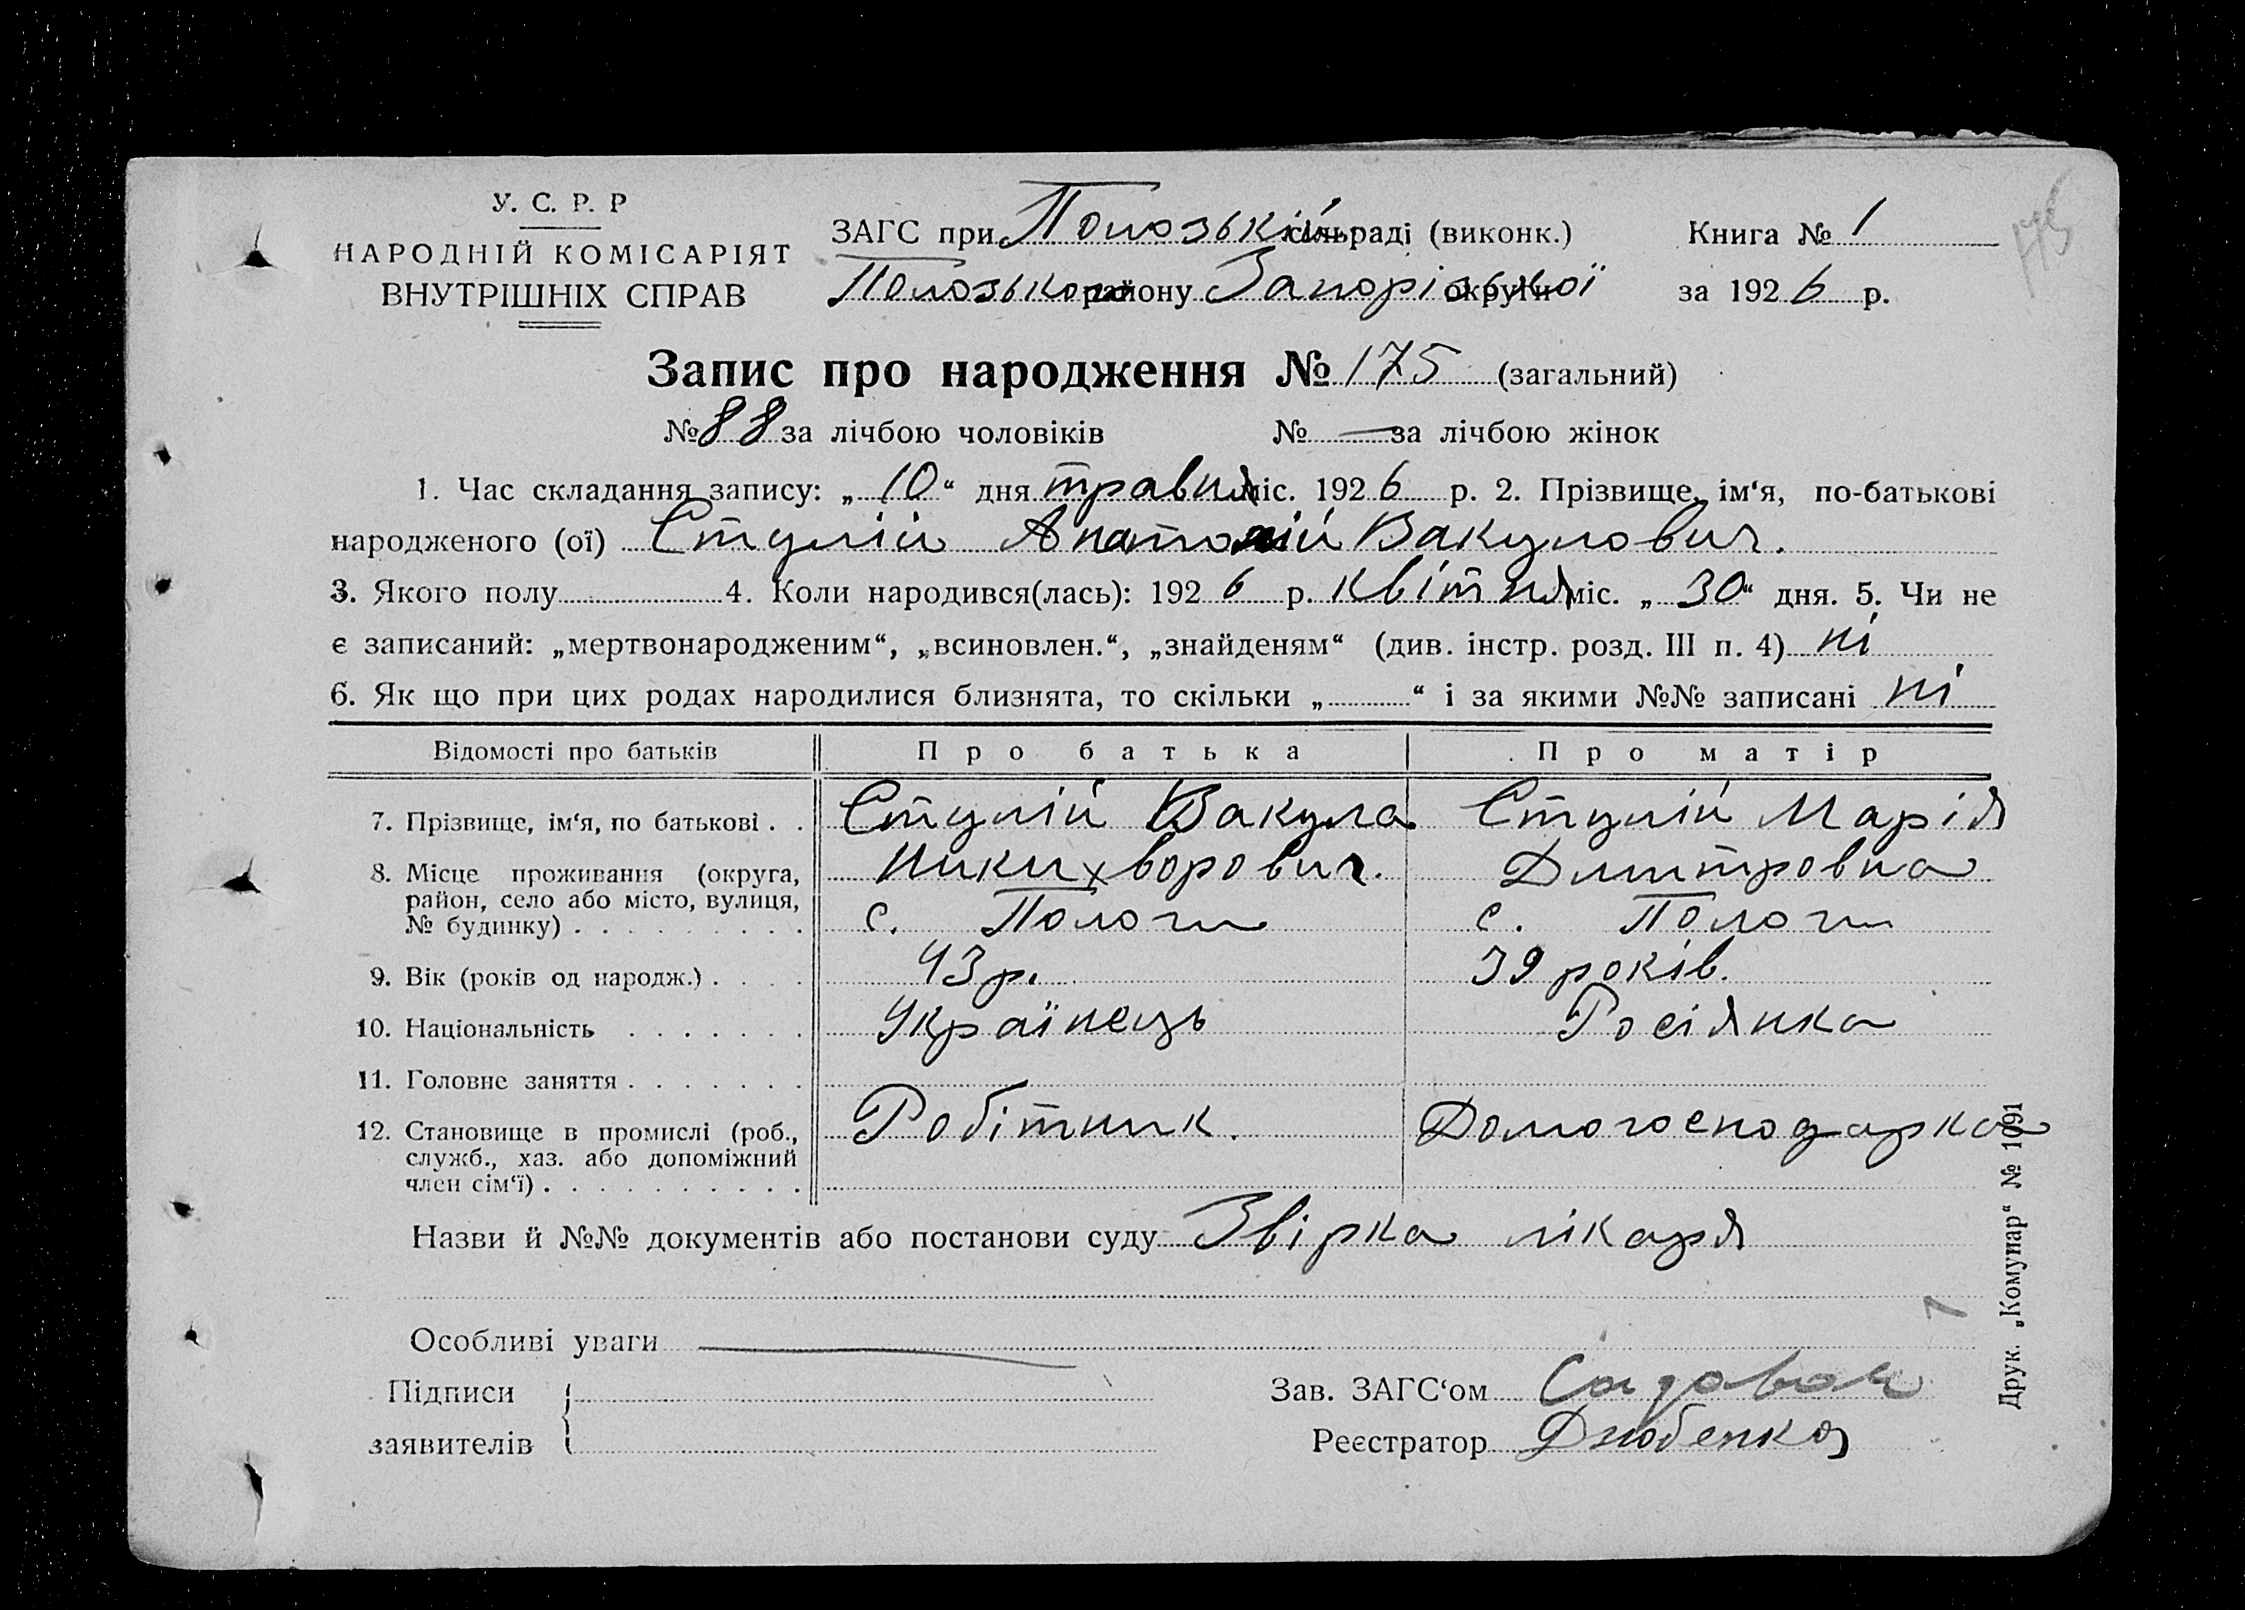 У. С. Р. Р
НАРОДНІЙ КОМІСАРІЯТ
ВНУТРІШНІХ СПРАВ
ЗАГС при Пологській сільраді (виконк.)
Книга № 1
175
Пологського району Запорізької округи
за 1926 р.
Запис про народження № 175 (загальний)
№ 88 за лічбою чоловіків № — за лічбою жінок
1. Час складання запису: „10“ дня травня міс. 1926 р. 2. Прізвище, ім‘я, по-батькові
народженого (ої) Стулій Анатолій Вакулович.
3. Якого полу 4. Коли народився(лась): 1926 р. квітня міс. „30“ дня. 5. Чи не
є записаний: „мертвонародженим“, „всиновлен.“, „знайденям“ (див. інстр. розд. III п. 4) ні
6. Як що при цих родах народилися близнята, то скільки „ “ і за якими №№ записані ні
Відомості про батьків Про батька Про матір
7. Прізвище, ім‘я, по батькові . . Стулій Вакула Стулій Марія
Никихворович. Дмитровна
8. Місце проживання (округа,
район, село або місто, вулиця,
№ будинку) . . . . . . . . . с. Пологи с. Пологи
9. Вік (років од народж.) . . . . 43 р. 39 років.
10. Національність . . . . . . . Українець Росіянка
11. Головне заняття . . . . . . .
12. Становище в промислі (роб.,
служб., хаз. або допоміжний
член сім‘ї) . . . . . . . . . . Робітник. Домогосподарка
Назви й №№ документів або постанови суду Звірка лікаря
Особливі уваги —
Підписи
заявителів
Зав. ЗАГС‘ом
Реєстратор Дзюбенко
Друк. „Комунар“ № 1091